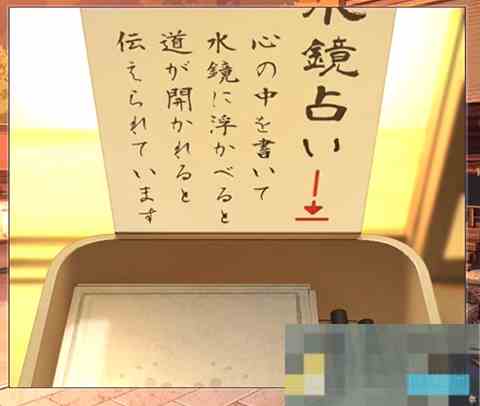 水鏡占い
心の中を書いて
水鏡に浮かべると
道が開かれると
伝えられています